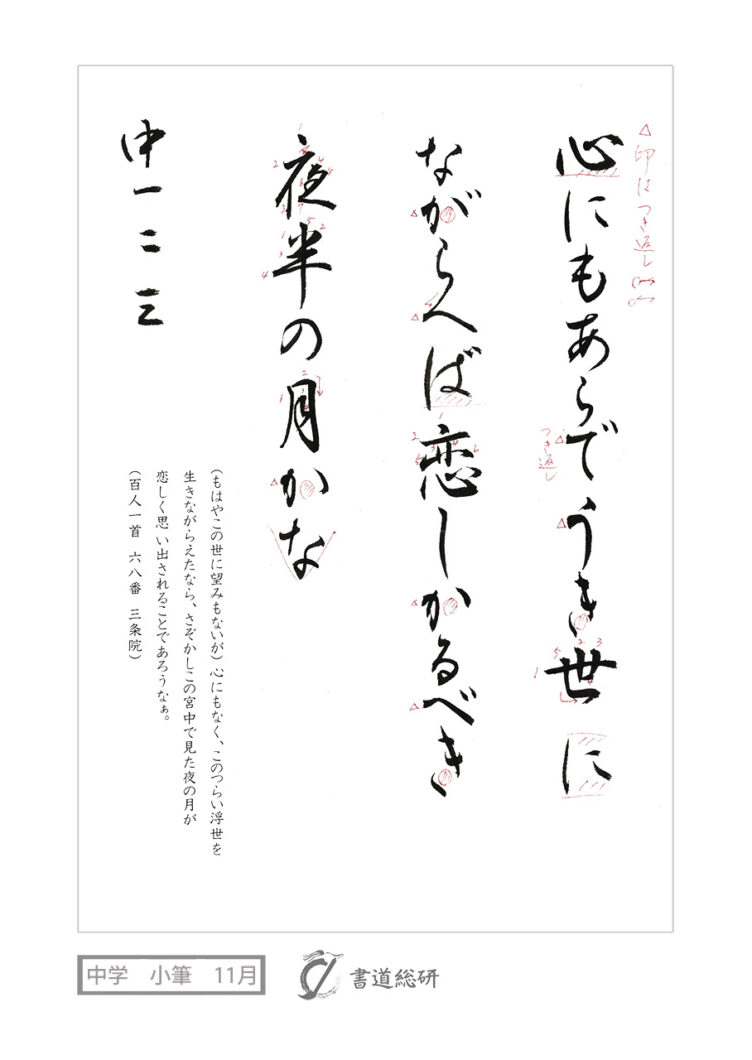 △印はつき返し
心にもあらでうき世に
つき返し
ながらへば恋しかるべき
夜半の月かな
中一二三
(もはやこの世に望みもないが)心にもなく、このつらい浮世を
生きながらえたなら、さぞかしこの宮中で見た夜の月が
恋しく思い出されることであろうなぁ。
(百人一首 六八番 三条院)
中学 小筆 11月
書道総研